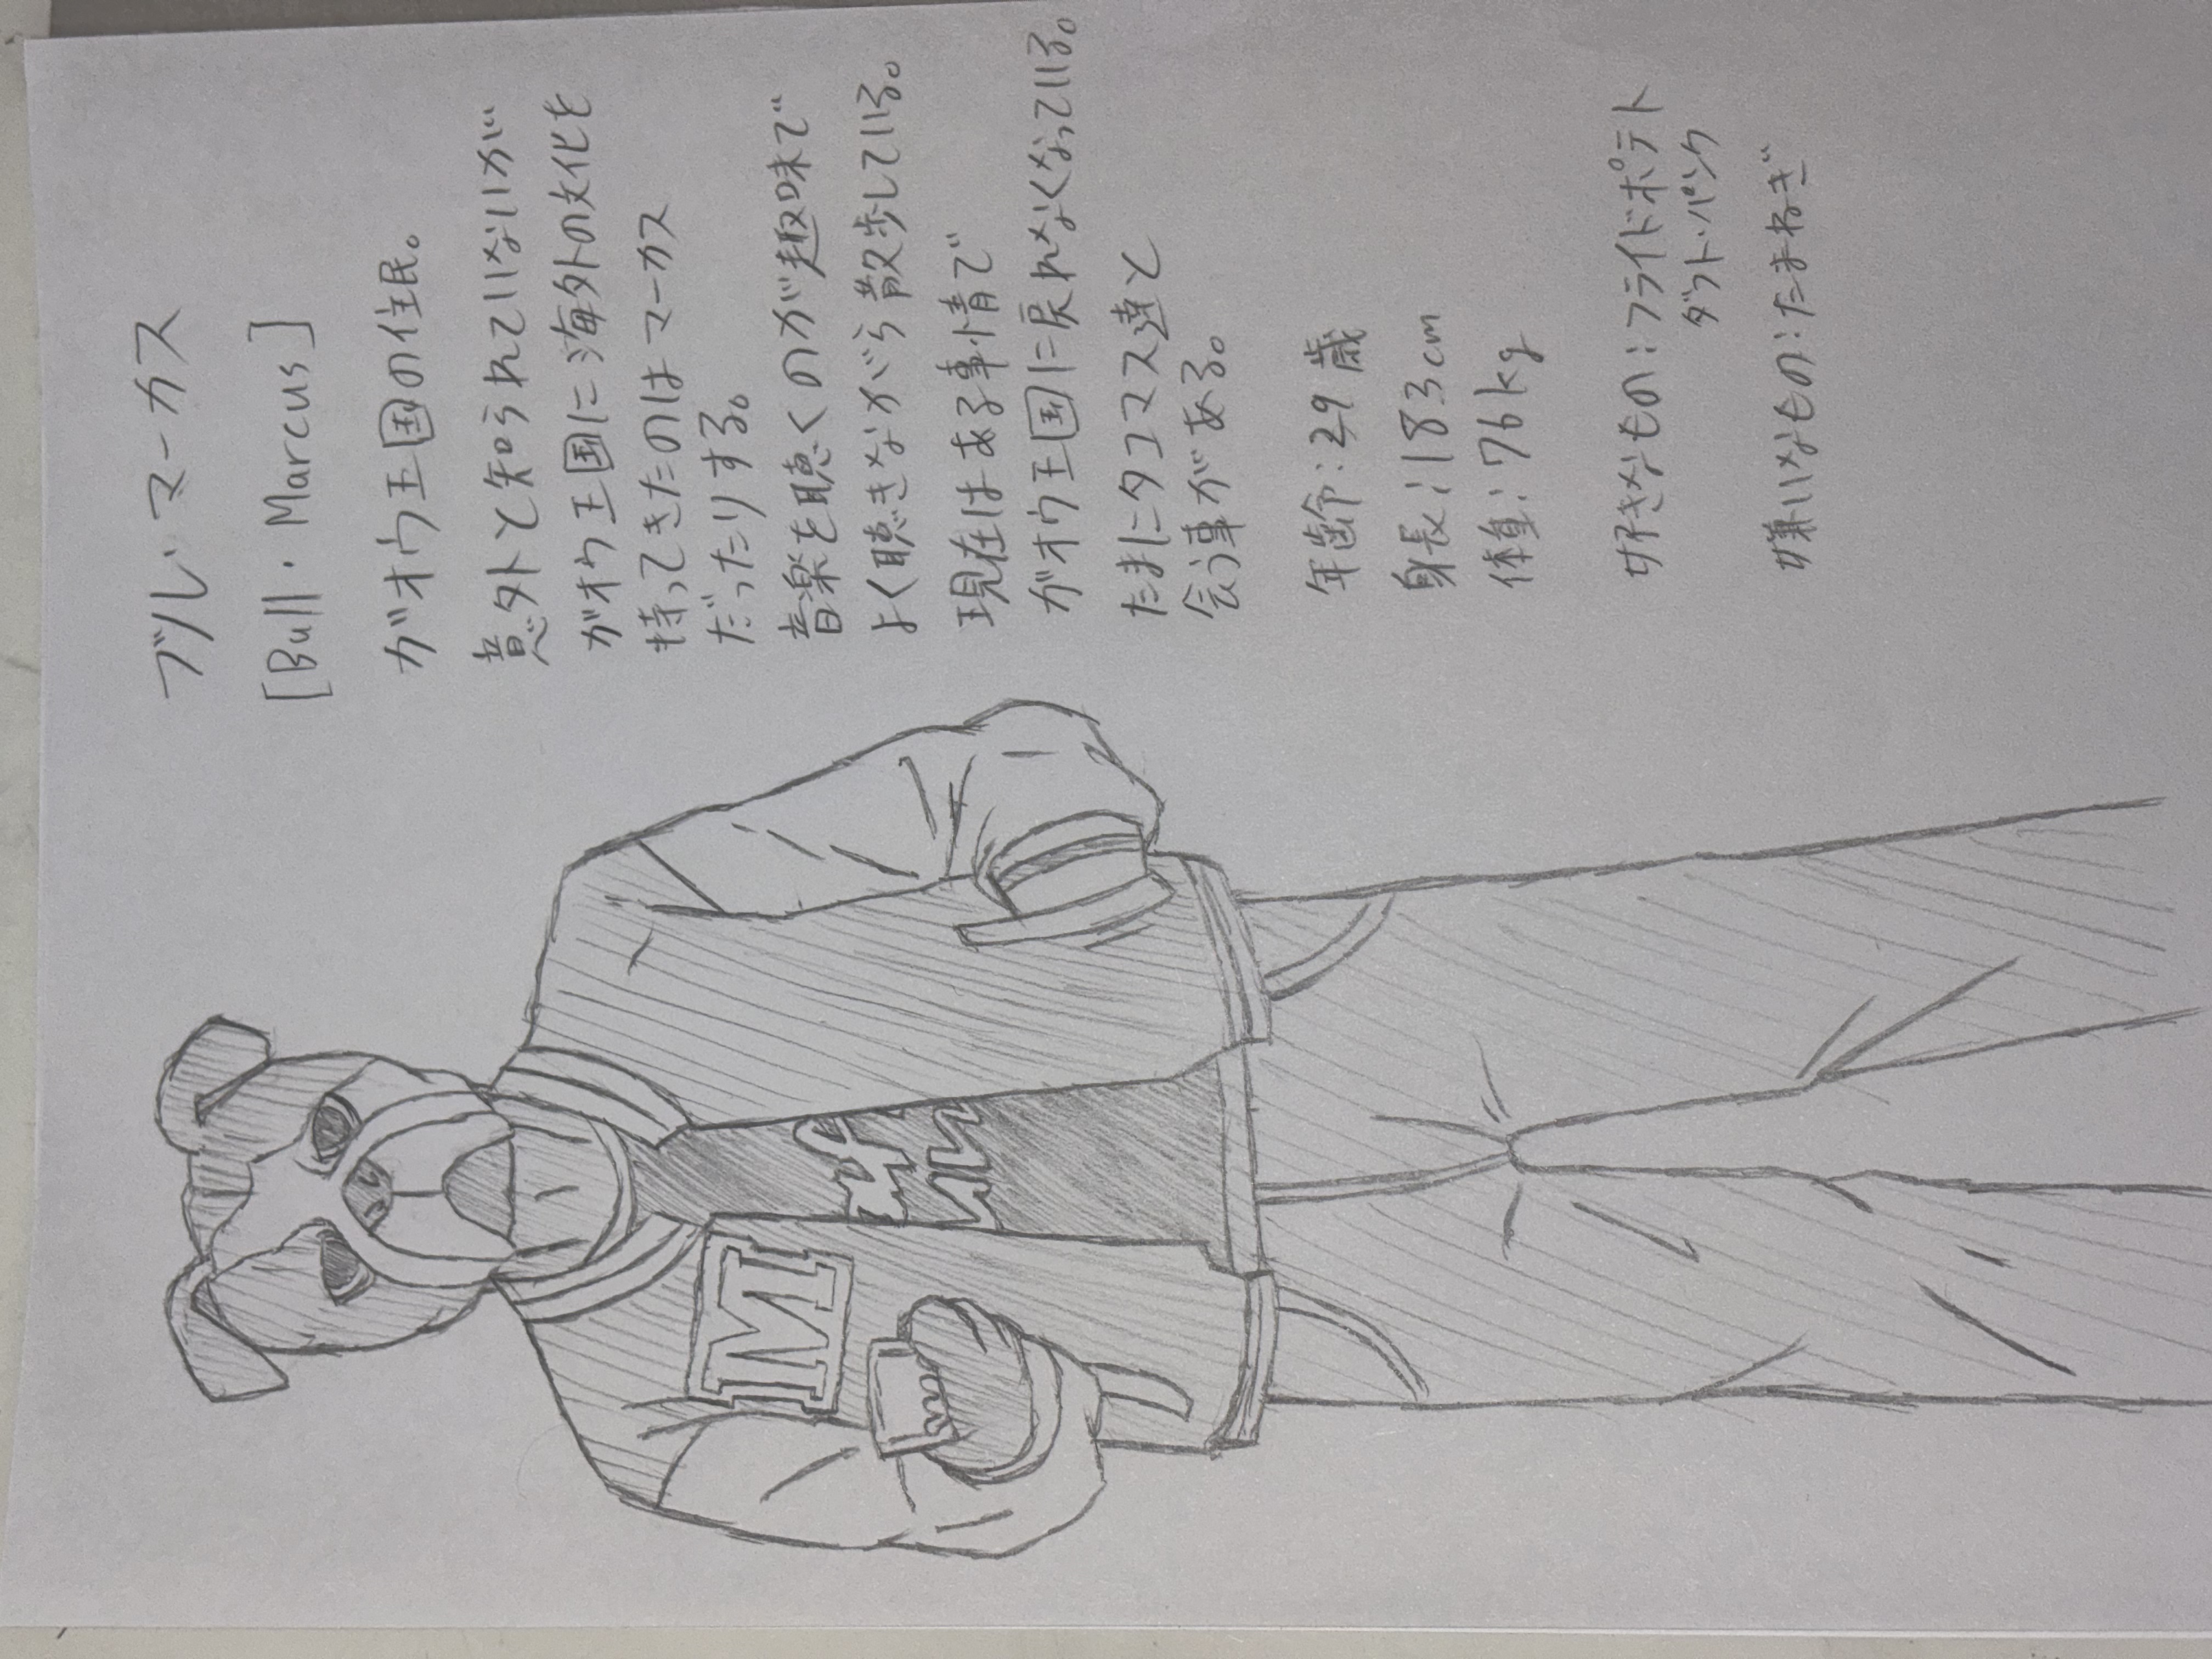 ブル・マーカス
[Bull・Marcus]
ガオウ王国の住民。
意外と知られていないが
ガオウ王国に海外の文化を
持ってきたのはマーカス
だったりする。
音楽を聴くのが趣味で
よく聴きながら散歩している。
現在はある事情で
ガオウ王国に戻れなくなっている。
たまにタコマス達と
会う事がある。
年齢:29歳
身長:183cm
体重:76kg
好きなもの:フライドポテト
ダフト・パンク
嫌いなもの:たまねぎ
M